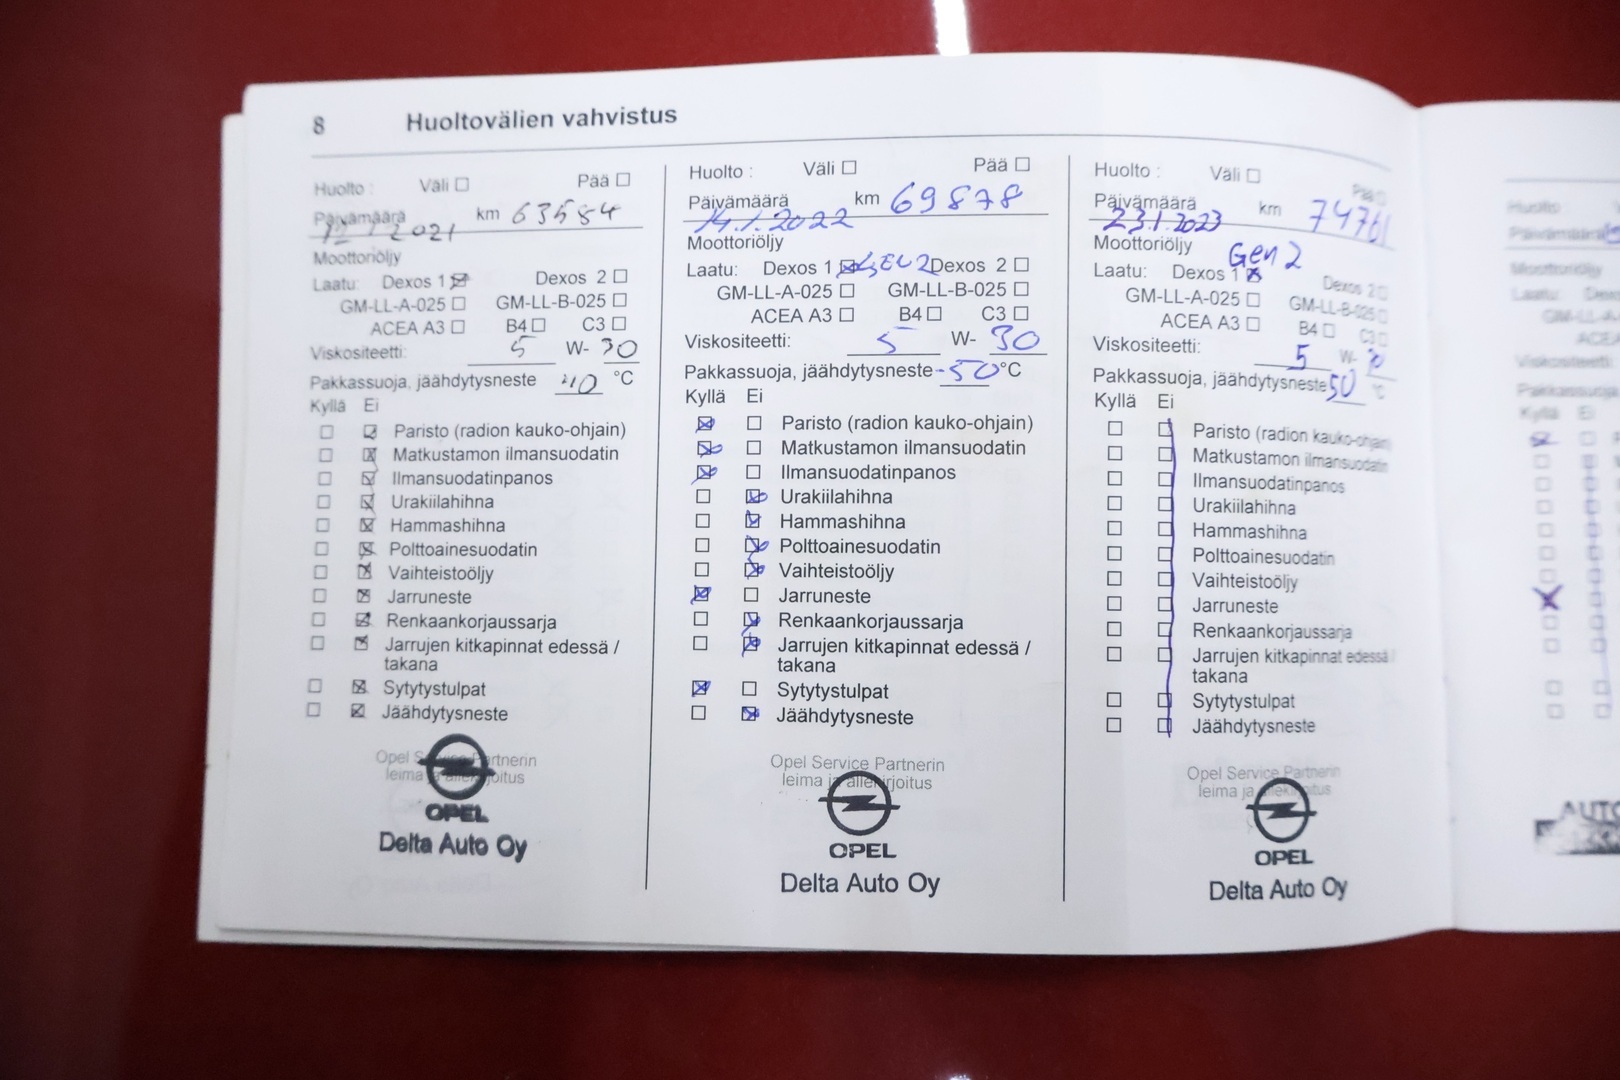 8 Huoltovälien vahvistus
Huolto : Väli ☐ Pää ☐
Päivämäärä 2021 km 63584
Moottoriöljy
Laatu: Dexos 1 ☒ Dexos 2 ☐
GM-LL-A-025 ☐ GM-LL-B-025 ☐
ACEA A3 ☐ B4 ☐ C3 ☐
Viskositeetti: 5 W- 30
Pakkassuoja, jäähdytysneste -40 °C
Kyllä Ei
☐ ☒ Paristo (radion kauko-ohjain)
☐ ☒ Matkustamon ilmansuodatin
☐ ☒ Ilmansuodatinpanos
☐ ☒ Urakiilahihna
☐ ☒ Hammashihna
☐ ☒ Polttoainesuodatin
☐ ☒ Vaihteistoöljy
☐ ☒ Jarruneste
☐ ☒ Renkaankorjaussarja
☐ ☒ Jarrujen kitkapinnat edessä /
takana
☐ ☒ Sytytystulpat
☐ ☒ Jäähdytysneste
Opel Service Partnerin
leima ja allekirjoitus
OPEL
Delta Auto Oy
Huolto : Väli ☐ Pää ☐
Päivämäärä 14.1.2022 km 69878
Moottoriöljy
Laatu: Dexos 1 ☒ GEN 2 Dexos 2 ☐
GM-LL-A-025 ☐ GM-LL-B-025 ☐
ACEA A3 ☐ B4 ☐ C3 ☐
Viskositeetti: 5 W- 30
Pakkassuoja, jäähdytysneste -50 °C
Kyllä Ei
☒ ☐ Paristo (radion kauko-ohjain)
☒ ☐ Matkustamon ilmansuodatin
☒ ☐ Ilmansuodatinpanos
☐ ☒ Urakiilahihna
☐ ☒ Hammashihna
☐ ☒ Polttoainesuodatin
☐ ☒ Vaihteistoöljy
☒ ☐ Jarruneste
☐ ☒ Renkaankorjaussarja
☐ ☒ Jarrujen kitkapinnat edessä /
takana
☒ ☐ Sytytystulpat
☐ ☒ Jäähdytysneste
Opel Service Partnerin
leima ja allekirjoitus
OPEL
Delta Auto Oy
Huolto : Väli ☐ Pää ☐
Päivämäärä 23.1.2023 km 74761
Moottoriöljy Gen 2
Laatu: Dexos 1 ☒ Dexos 2 ☐
GM-LL-A-025 ☐ GM-LL-B-025 ☐
ACEA A3 ☐ B4 ☐ C3 ☐
Viskositeetti: 5 W-
Pakkassuoja, jäähdytysneste 50 °C
Kyllä Ei
☐ ☐ Paristo (radion kauko-ohjain)
☐ ☐ Matkustamon ilmansuodatin
☐ ☐ Ilmansuodatinpanos
☐ ☐ Urakiilahihna
☐ ☐ Hammashihna
☐ ☐ Polttoainesuodatin
☐ ☐ Vaihteistoöljy
☐ ☐ Jarruneste
☐ ☐ Renkaankorjaussarja
☐ ☐ Jarrujen kitkapinnat edessä /
takana
☐ ☐ Sytytystulpat
☐ ☐ Jäähdytysneste
Opel Service Partnerin
leima ja allekirjoitus
OPEL
Delta Auto Oy
Huolto
Päivämäärä
Moottoriöljy
Laatu:
Kyllä Ei